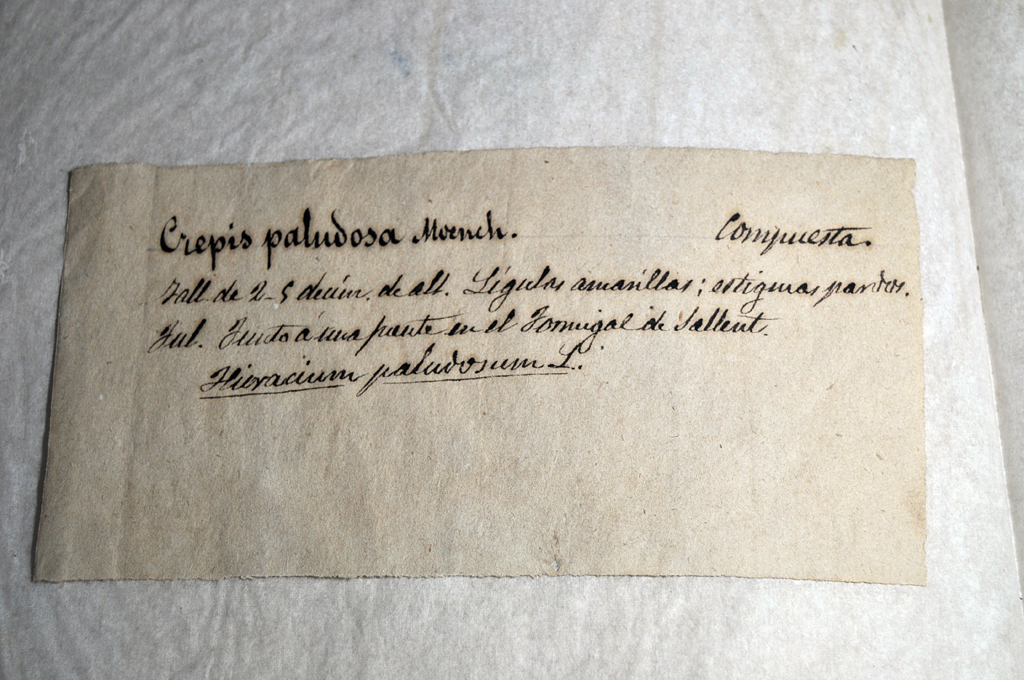 Crepis paludosa Moench. Compuesta.
Tall. de 2-5 decím. de alt. Lígulas amarillas; estigmas pardos.
Jul. Junto á una fuente en el Formigal de Sallent.
Hieracium paludosum L.